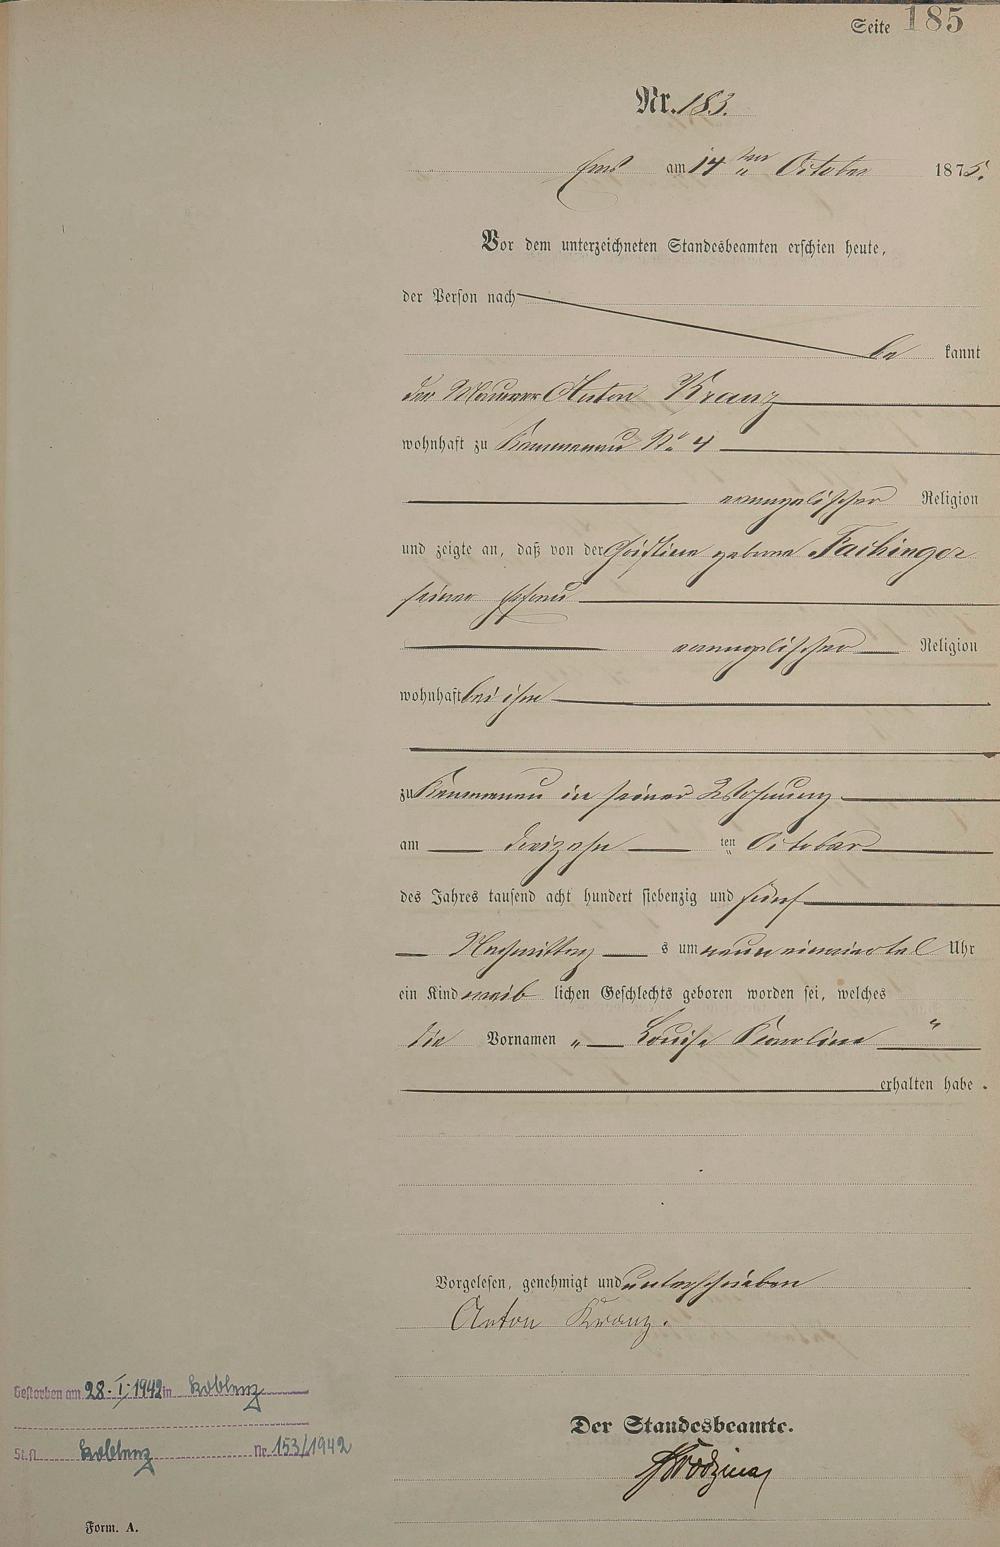 Seite 185
Nr. 183.
Ems am 14 ten October 1875.
Vor dem unterzeichneten Standesbeamten erschien heute,
der Person nach
be kannt
der Maurer Anton Kranz
wohnhaft zu Kemmenau No 4
evangelischer Religion
und zeigte an, daß von der Christine geborne Fachinger
seiner Ehefrau
evangelischer Religion
wohnhaft bei ihm
zu Kemmenau in seiner Wohnung
am dreizehn ten October
des Jahres tausend acht hundert siebenzig und fünf
Nachmittag s um neun einviertel Uhr
ein Kind weib lichen Geschlechts geboren worden sei, welches
die Vornamen " Louise Karoline "
erhalten habe.
Vorgelesen, genehmigt und unterschrieben
Anton Kranz.
Gestorben am 28. I. 1942 in Koblenz
Der Standesbeamte.
St.A. Koblenz Nr. 153/1942
Form. A.